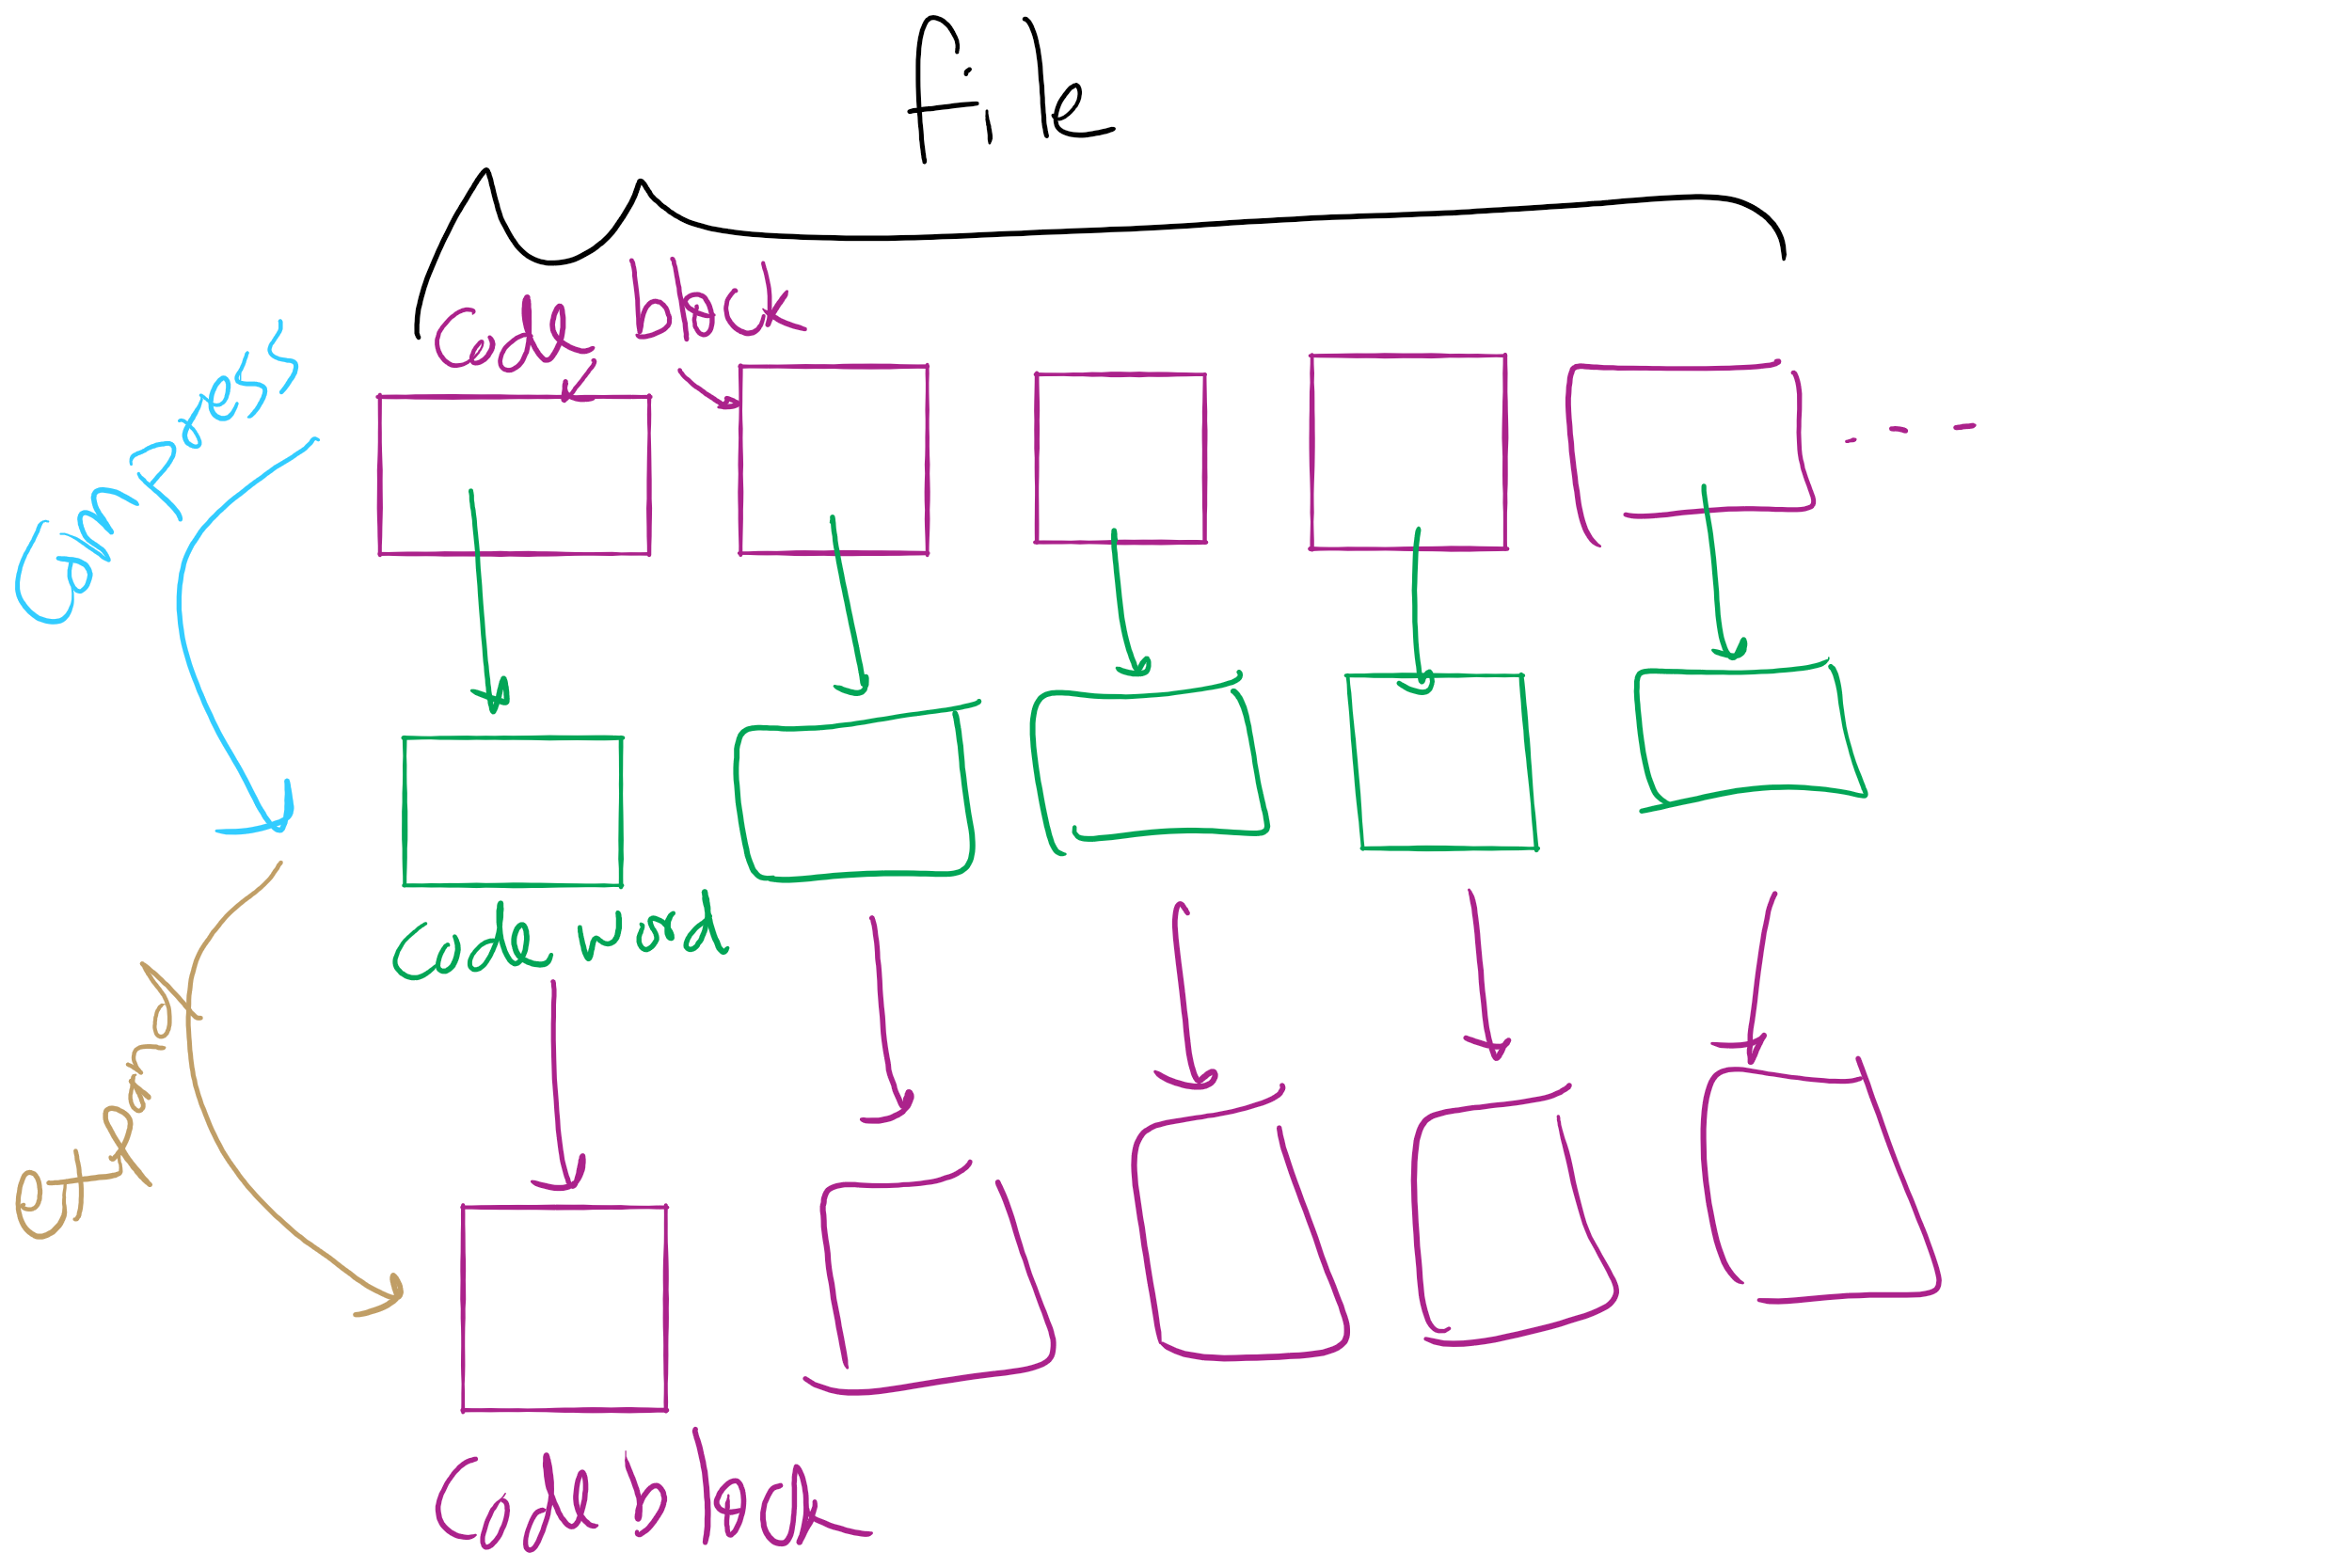 file
Code block
Compress
Code word
expand
Code block